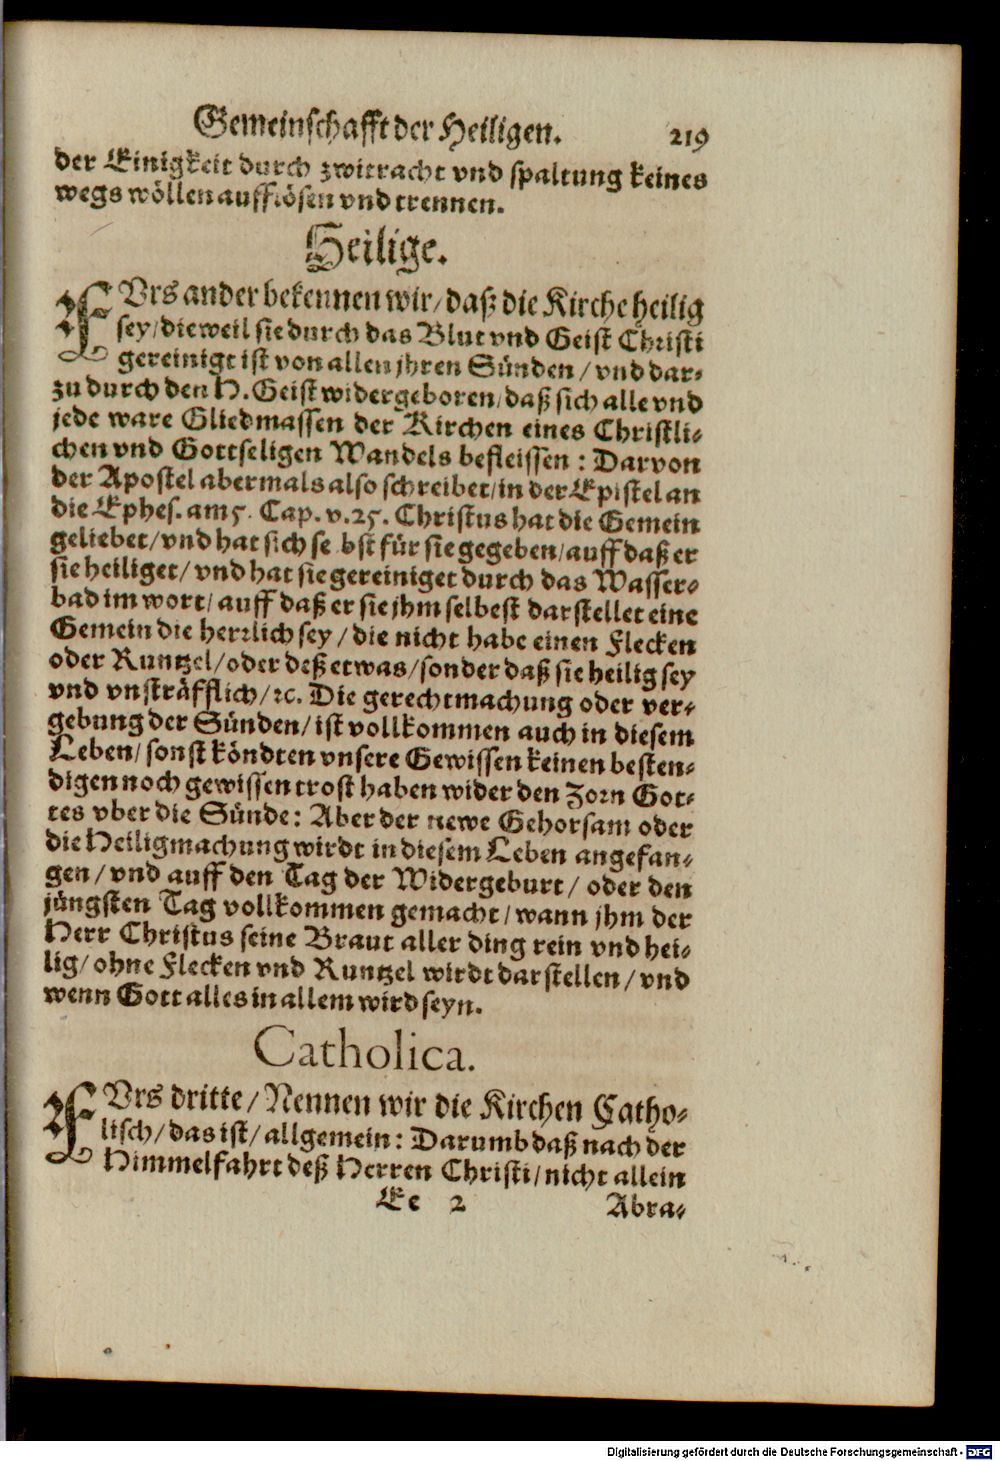 Gemeinschafft der Heiligen. 219
der Einigkeit durch zwitracht vnd spaltung keines
wegs wöllen aufflösen vnd trennen.
Heilige.
FVrs ander bekennen wir/ daß die Kirche heilig
sey/ dieweil sie durch das Blut vnd Geist Christi
gereinigt ist von allen jhren Sünden / vnd dar-
zu durch den H. Geist widergeboren/ daß sich alle vnd
jede ware Gliedmassen der Kirchen eines Christli-
chen vnd Gottseligen Wandels befleissen : Darvon
der Apostel abermals also schreibet/ in der Epistel an
die Ephes. am 5. Cap. v. 25. Christus hat die Gemein
geliebet/ vnd hat sich selbst für sie gegeben/ auff daß er
sie heiliget/ vnd hat sie gereiniget durch das Wasser-
bad im wort/ auff daß er sie jhm selbest darstellet eine
Gemein die herrlich sey / die nicht habe einen Flecken
oder Runtzel/ oder deß etwas/ sonder daß sie heilig sey
vnd vnsträfflich/ ꝛc. Die gerechtmachung oder ver-
gebung der Sünden/ ist vollkommen auch in diesem
Leben/ sonst köndten vnsere Gewissen keinen besten-
digen noch gewissen trost haben wider den Zorn Got-
tes vber die Sünde: Aber der newe Gehorsam oder
die Heiligmachung wirdt in diesem Leben angefan-
gen / vnd auff den Tag der Widergeburt / oder den
jüngsten Tag vollkommen gemacht / wann jhm der
Herr Christus seine Braut aller ding rein vnd hei-
lig/ ohne Flecken vnd Runtzel wirdt darstellen / vnd
wenn Gott alles in allem wird seyn.
Catholica.
FVrs dritte/ Nennen wir die Kirchen Catho-
lisch/ das ist/ allgemein: Darumb daß nach der
Himmelfahrt deß Herren Christi/ nicht allein
Ee 2 Abra-
Digitalisierung gefördert durch die Deutsche Forschungsgemeinschaft - DFG